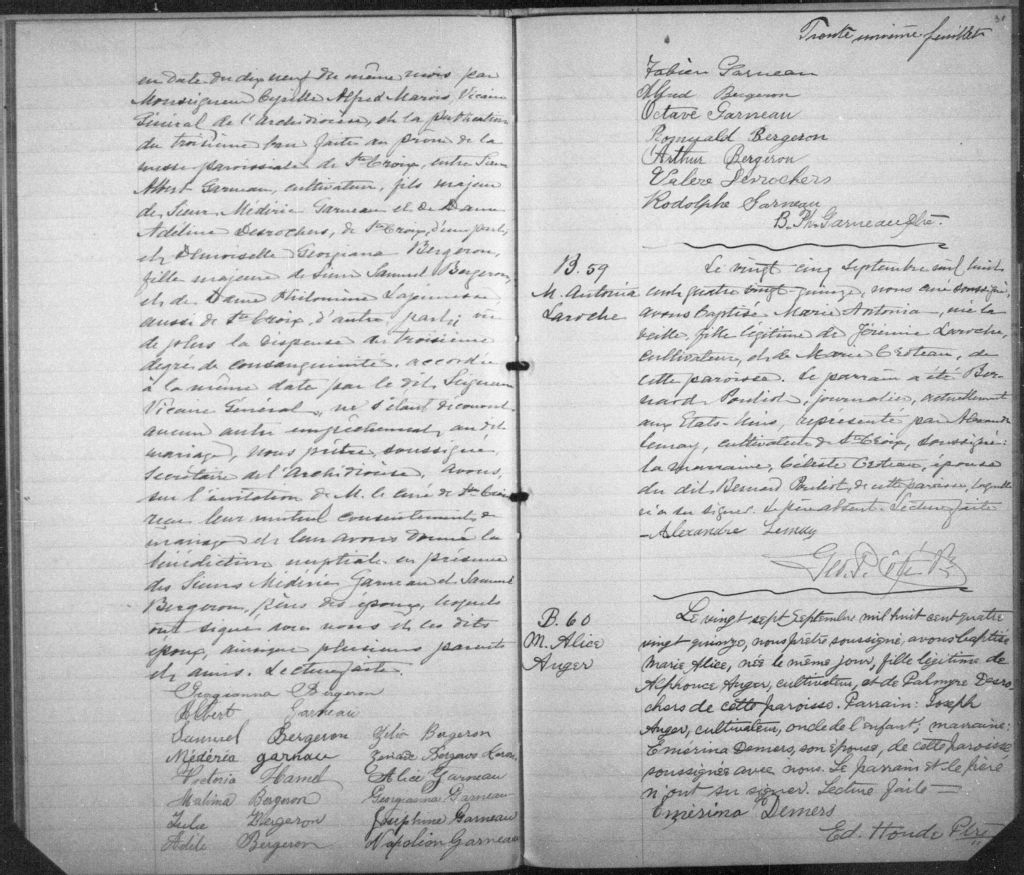 en date du dix neuf du même mois par
Monseigneur Cyrille Alfred Marois, Vicaire
Général de l'Archidiocèse, et la publication
du troisième ban faite au prone de la
messe paroissiale de Ste Croix, entre Sieur
Albert Garneau, cultivateur, fils majeur
de Sieur Médéric Garneau et de Dame
Adéline Desrochers, de Ste Croix, d'une part,
et Demoiselle Georgiana Bergeron,
fille majeure de Sieur Samuel Bergeron,
et de Dame Philomène Lajeunesse
aussi de Ste Croix, d'autre part; vu
de plus la dispense du troisième
degré de consanguinité, accordée
à la même date par le dit Seigneur
Vicaire Général, ne s'étant découvert
aucun autre empêchement au dit
mariage, Nous prêtre, soussigné,
Secrétaire de l'Archidiocèse, avons,
sur l'invitation de M. le Curé de Ste Croix
reçu leur mutuel consentement de
mariage et leur avons donné la
bénédiction nuptiale en présence
des Sieurs Médéric Garneau et Samuel
Bergeron, pères des époux, lesquels
ont signé avec nous et les dits
époux, ainsi que plusieurs parents
et amis. Lecture faite.
Georgianna Bergeron
Albert Garneau
Samuel Bergeron
Médéric garnau
Victoria Hamel
Malvina Bergeron
Bergeron
Adèle Bergeron
Bergeron
Alice Garneau
Georgianna Garneau
Josephine Garneau
Napoléon Garneau
31
Trente unième feuillet
Fabien Garneau
Alfred Bergeron
Octave Garneau
Romuald Bergeron
Arthur Bergeron
Valère Desrochers
Rodolphe Garneau
B. Ph. Garneau Ptre.
B. 59
M. Antonia
Laroche
Le vingt cinq Septembre mil huit
cent quatre vingt-quinze, nous curé soussigné,
avons baptisé Marie Antonia, née la
veille, fille légitime de Jérémie Laroche,
cultivateur, et de Marie Croteau, de
cette paroisse. Le parrain a été Ber-
nard Pouliot, journalier, actuellement
aux Etats-Unis, représenté par Alexandre
Lemay, cultivateur de Ste Croix, soussigné:
la marraine, Céleste Croteau, épouse
du dit Bernard Pouliot, de cette paroisse, laquelle
n'a su signer. Le père absent. Lecture faite
- Alexandre Lemay
Geo. P. Côté Ptr
B. 60
M. Alice
Auger
Le vingt sept Septembre mil huit cent quatre
vingt quinze, nous prêtre soussigné, avons baptisé
Marie Alice, née le même jour, fille légitime de
Alphonce Auger, cultivateur, et de Palmyre Desro-
chers de cette paroisse. Parrain: Joseph
Auger, cultivateur, oncle de l'enfant; marraine:
Emérina Demers, son épouse, de cette paroisse
soussignée avec nous. Le parrain et le père
n'ont su signer. Lecture faite —
Emérina Demers
Ed. Houde Ptre